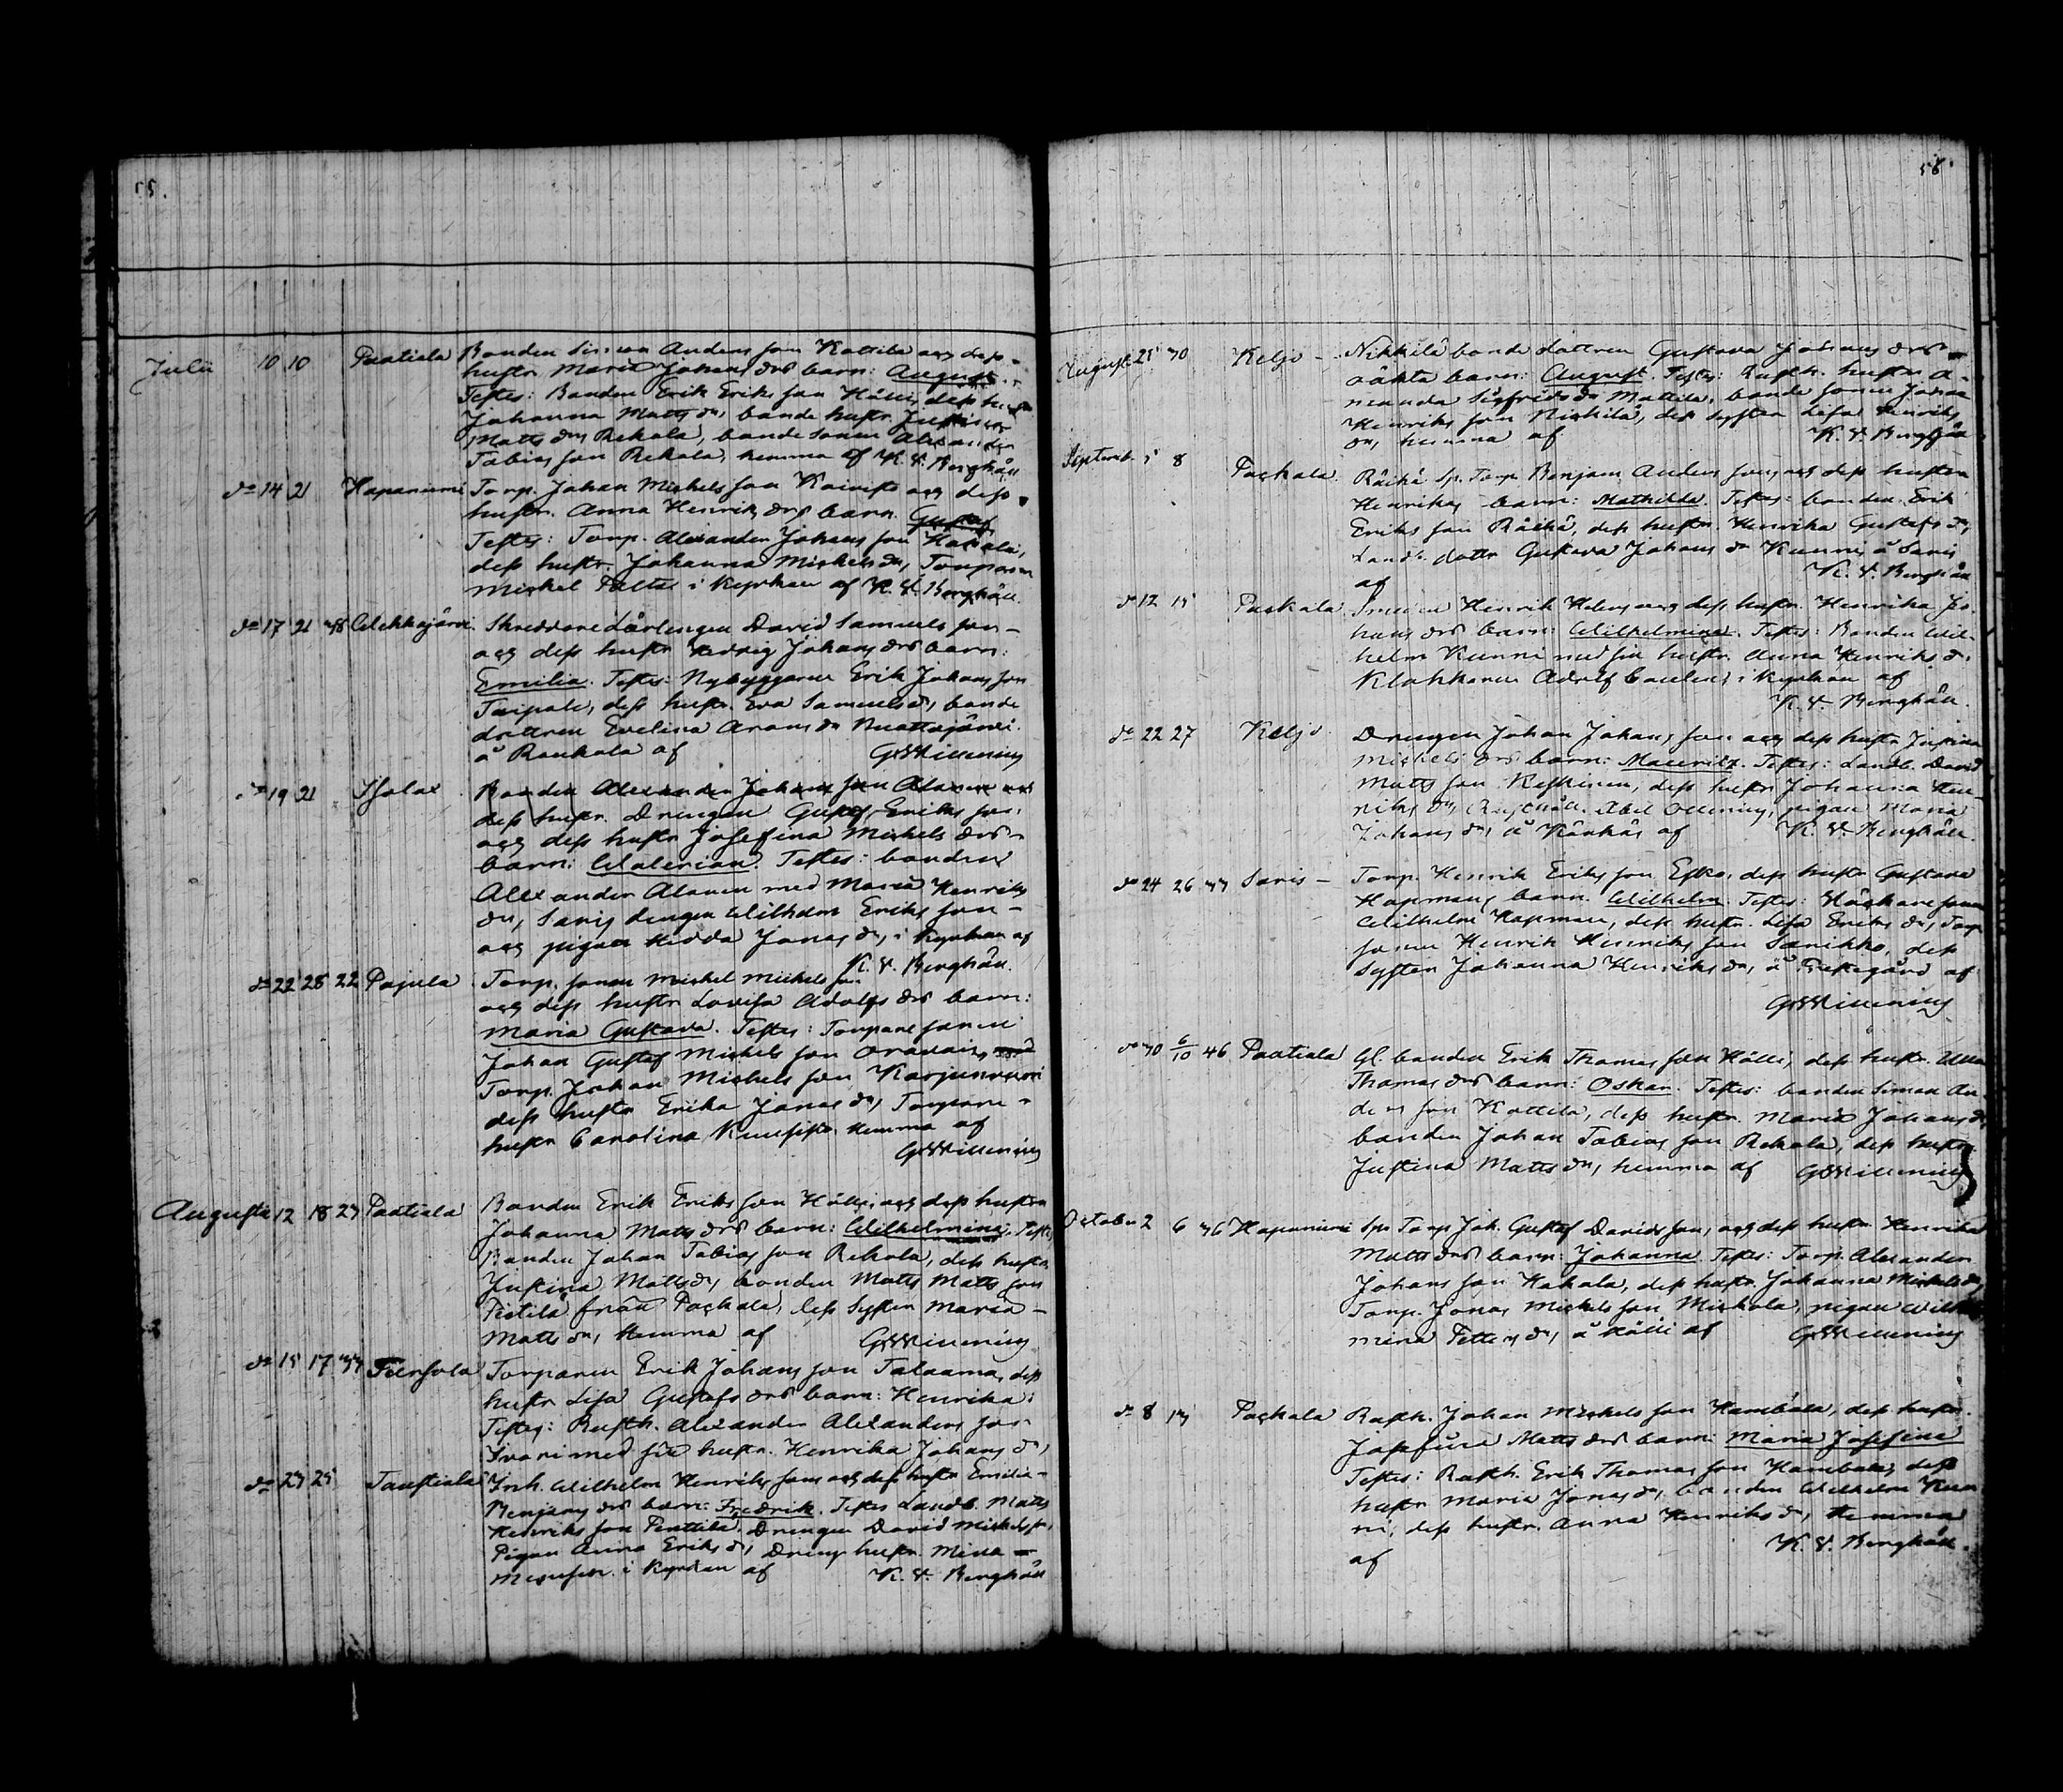 55.
Julii 10 10 Paatiala Bonden Simon Anders son Kattila och dess
hustr. Maria Johans drs barn: August.
Testes: Bonden Erik Eriks son Hälli, dess hustr
Johanna Matts dr, bonde hustr. Justina
Matts dr, Rekola, bonde sonen Alexander
Tobias son Rekola, hemma af K. F. Berghäll
do 14 21 Hapaniemi Torp. Johan Mickels son Koivisto och dess
hustr. Anna Henriks drs barn. Gustaf
Testes: Torp. Alexander Johans son Hakala,
dess hustr. Johanna Mickels dr, Torparen
Mickel Paltta i Kyrkan af K. F. Berghäll.
do 17 21 38 Wehkajärvi Skreddare Lärlingen David Samuels son
och dess hustr Hedvig Johans drs barn:
Emilia. Testes: Nybyggaren Erik Johans son
Taipale, dess hustr. Eva Samuels dr, bonde
dottren Evelina Arams dr Vuottojärvi
å Ronkola af
do 19 21 Isolax Bonden Alexander Johans son Alanen och
dess hustr. Drengen Gustaf Eriks son
och dess hustr Josefina Mickels drs
barn: Walerian. Testes: bonden
Alexander Alanen med Maria Henriks
dr, Saris drengen Wilhelm Eriks son
och pigan Hedda Jonas dr, i Kyrkan af
K. F. Berghäll.
do 22 28 22 Pajula Torp. sonen Mickel Mickels son
och dess hustr Lovisa Adolfs drs barn:
Maria Gustava. Testes: Torpare sonen
Johan Gustaf Mickels son
Torp. Johan Mickels son Karjunvuori
dess hustr Erika Jonas dr, Torpare
hustr Carolina hemma af
Augusti 12 18 23 Paatiala Bonden Erik Eriks son Hälli, och dess hustru
Johanna Matts drs barn: Wilhelmina. Testes
Bonden Johan Tobias son Rekola, dess hustr
Justina Matts dr, bonden Matts Matts son
från Paskala, dess Syster Maria
Matts dr, Hemma af
do 15 17 33 Torparen Erik Johans son Talaama, dess
hustr Lisa Gustafs drs barn: Henrika.
Testes: Rusth. Alexander Alexanders son
med sin hustr. Henrika Johans dr,
do 23 25 Taustiala Inh. Wilhelm Henriks son och dess hustr Emilia
Benjams drs barn: Fredrik. Testes Landb. Matts
Henriks son Penttilä, Drengen David Mickels son,
Pigan Anna Eriks dr, Drengs hustr. Mina
i Kyrkan af K. F. Berghäll
56
August 25 30 Keljo Nikkilä bonde dottren Gustava Johans drs
oäkta barn: August. Testes: Rusth. hustr A-
manda Sigfrids dr Mattila, bonde sonen Johan
Henriks son Nikkilä, dess syster Lisa Henriks
dr, hemma af K. F. Berghäll
Septemb. 5 8 Paskala Räikä Sp. Torp. Benjam. Anders son och dess hustru
Henrikas barn: Mathilda. Testes: bonden Erik
Eriks son Räikä, dess hustr. Henrika Gustafs dr,
Landb. dottr Gustava Johans dr Kunni, å Saris
af K. F. Berghäll
do 12 15 Paskala Smeden Henrik Helens och dess hustr. Henrika Jo-
hans drs barn: Wilhelmina. Testes: Bonden Wil-
helm Kunni med sin hustr. Anna Henriks dr.
Klockaren Adolf i Kyrkan af
K. F. Berghäll.
do 22 27 Keljo Drengen Johan Johans son och dess hustr Justina
Mickels drs barn: Mauritz. Testes: Landb. David
Matts son Keskinen, dess hustr Johanna Hen-
riks dr, Rusthåll. Abel pigan Maria
Johans dr, å af K. F. Berghäll.
do 24 26 33 Saris Torp. Henrik Eriks son Esko, dess hustr Gustava
Hapmans barn. Wilhelm. Testes:
Wilhelm Hapman, dess hustr. Lisa Eriks dr, Torp.
sonen Henrik Henriks son Särikko, dess
Syster Johanna Henriks dr, å Prestegård af
do 30 6/10 46 Paatiala Gl. bonden Erik Thomas son Hälli, dess hustr. Ulla
Thomas drs barn: Oskar. Testes: bonden Simon An-
ders son Kattila, dess hustr. Maria Johans dr
bonden Johan Tobias son Rekola, dess hustr.
Justina Matts dr, hemma af
October 2 6 36 Hapaniemi Sp. Torp. Joh. Gustaf Davids son, och dess hustr. Henrika
Matts drs barn: Johanna. Testes: Torp. Alexander
Johans son Hakala, dess hustr. Johanna Mickels dr,
Torp. Jonas Mickels son Miskola, pigan Wilhel
mina dr, å Hälli af
do 8 13 Paskala Rusth. Johan Mickels son Hannbala, dess hustr.
Josefina Matts drs barn: Maria Josefina
Testes: Rusth. Erik Thomas son Hannbala, dess
hustr Maria Jonas dr, bonden Wilhelm Kun
ni, dess hustr. Anna Henriks dr, Hemma
af K. F. Berghäll.